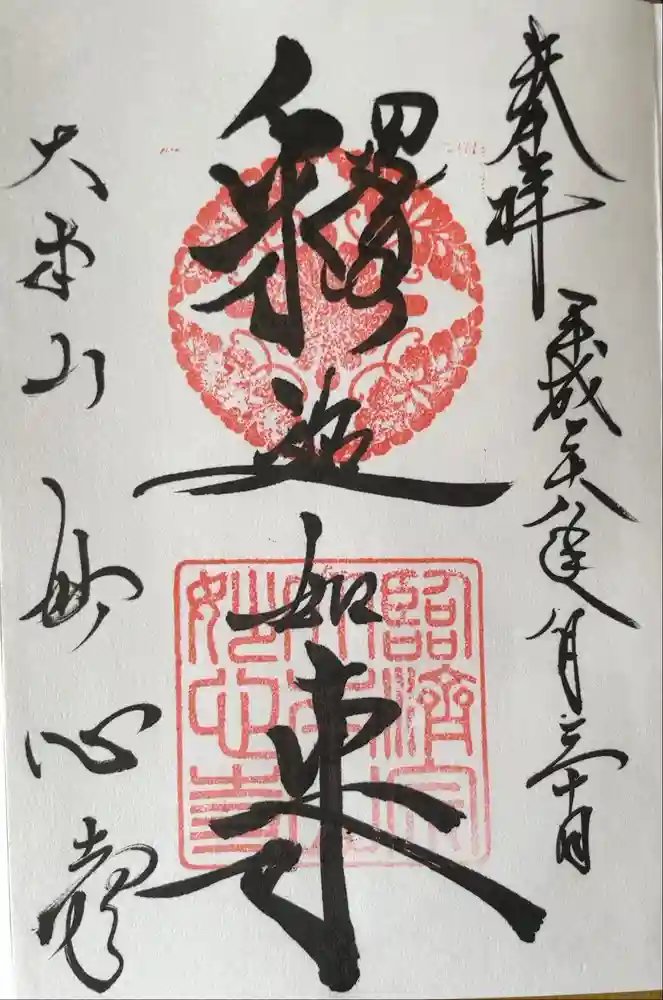 奉拝
平成二十八年八月三十日
釋迦如来
大本山
妙心寺
臨濟宗
大本山
妙心寺